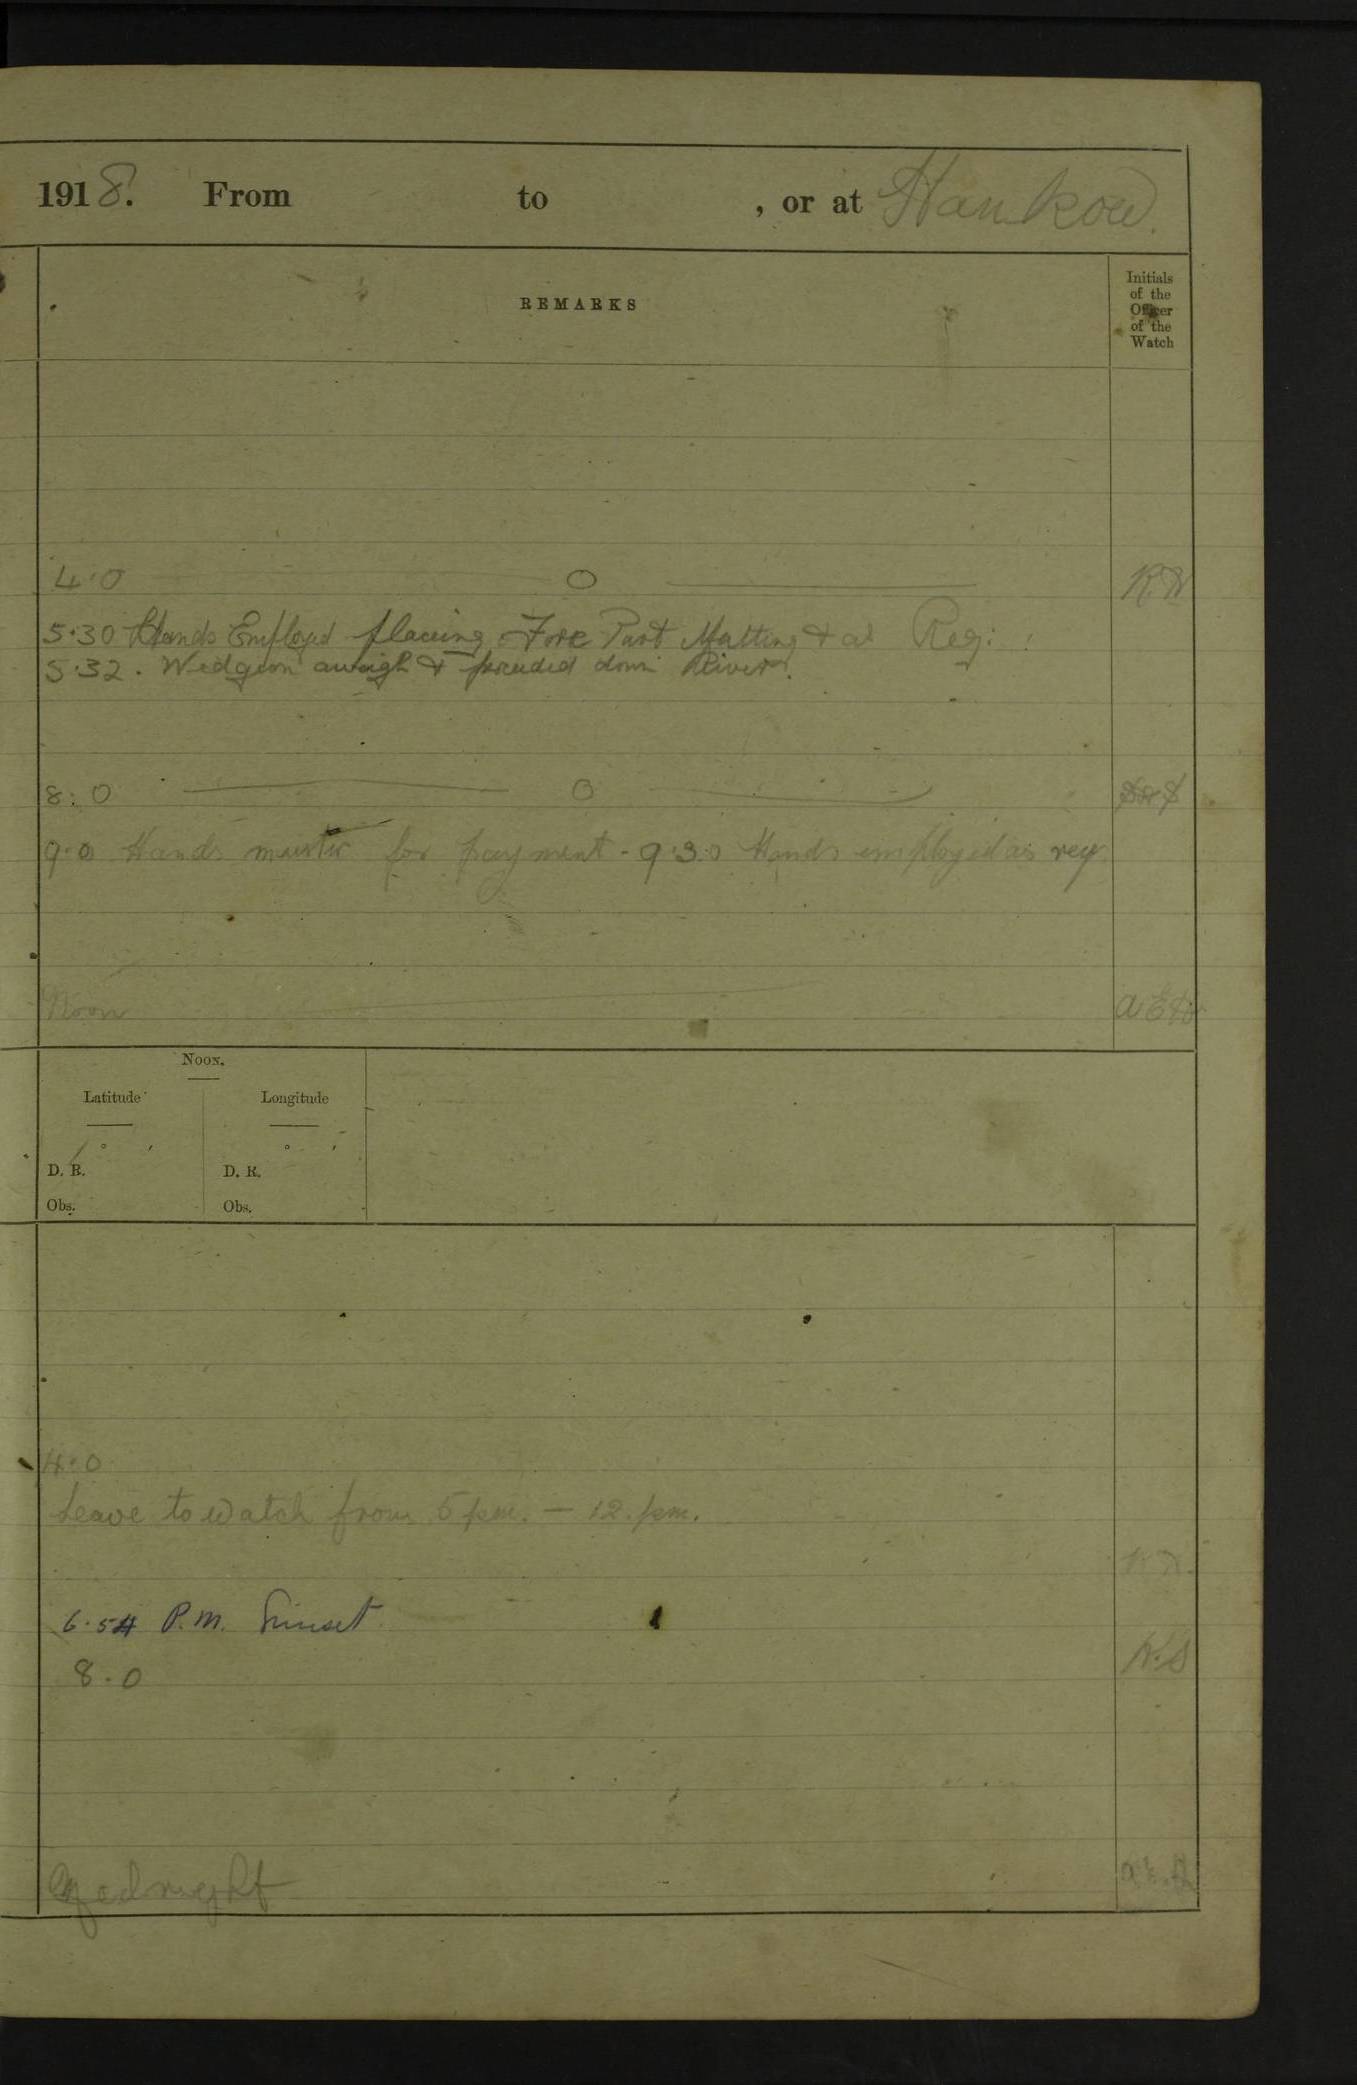 1918. From to , or at Hankow.
REMARKS
Initials
of the
Officer
of the
Watch
4.0 O
5.30 Hands Employed placing Fore Part Matting & as Req:
5.32. Widgeon aweigh & proceeded down River.
8:0 O
9.0 Hands muster for payment - 9.30 Hands employed as req
Noon
NOON.
Latitude Longitude
° ′ ° ′
D. R. D. R.
Obs. Obs.
4.0
Leave to watch from 5 pm. — 12. pm.
6.54 P.M. Sunset
8.0
Midnight